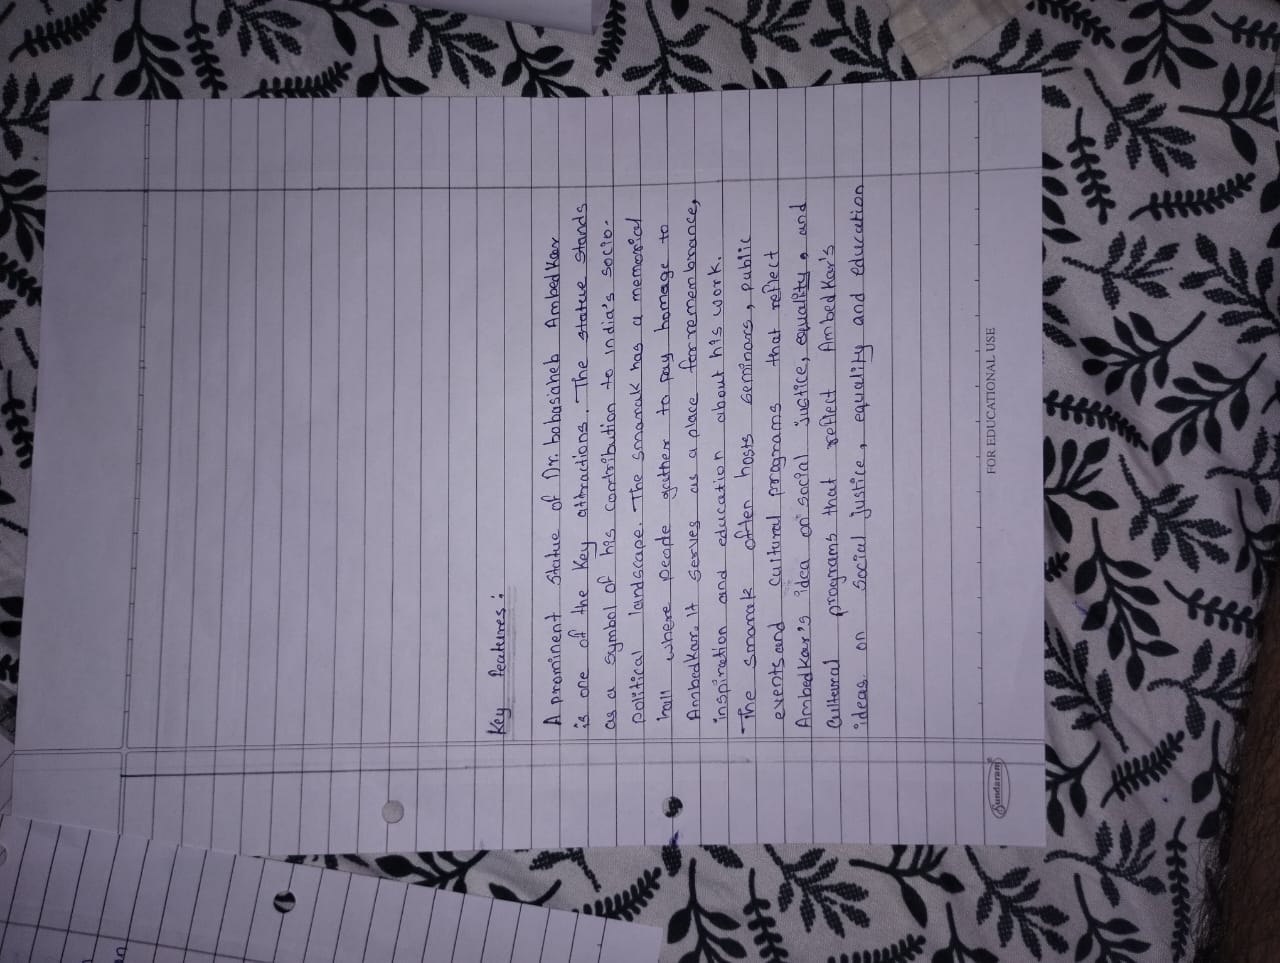 an
Key features :
A prominent statue of Dr. babasaheb Ambedkar
is one of the key attractions. The statue stands
as a symbol of his contribution to india's socio-
political landscape. The smarak has a memorial
hall where people gather to pay homage to
Ambedkar. It serves as a place for remembrance,
inspiration and education about his work.
The smarak often hosts seminars, public
events and cultural programs that reflect
Ambedkar's idea on social justice, equality, and
Cultural programs that reflect Ambedkar's
ideas on social justice, equality and education
Sundaram
FOR EDUCATIONAL USE